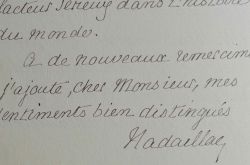 facteur sérieux dans l'histoire
du monde.
A de nouveaux remerciem
j'ajoute, cher Monsieur, mes
sentiments bien distingués
Nadaillac